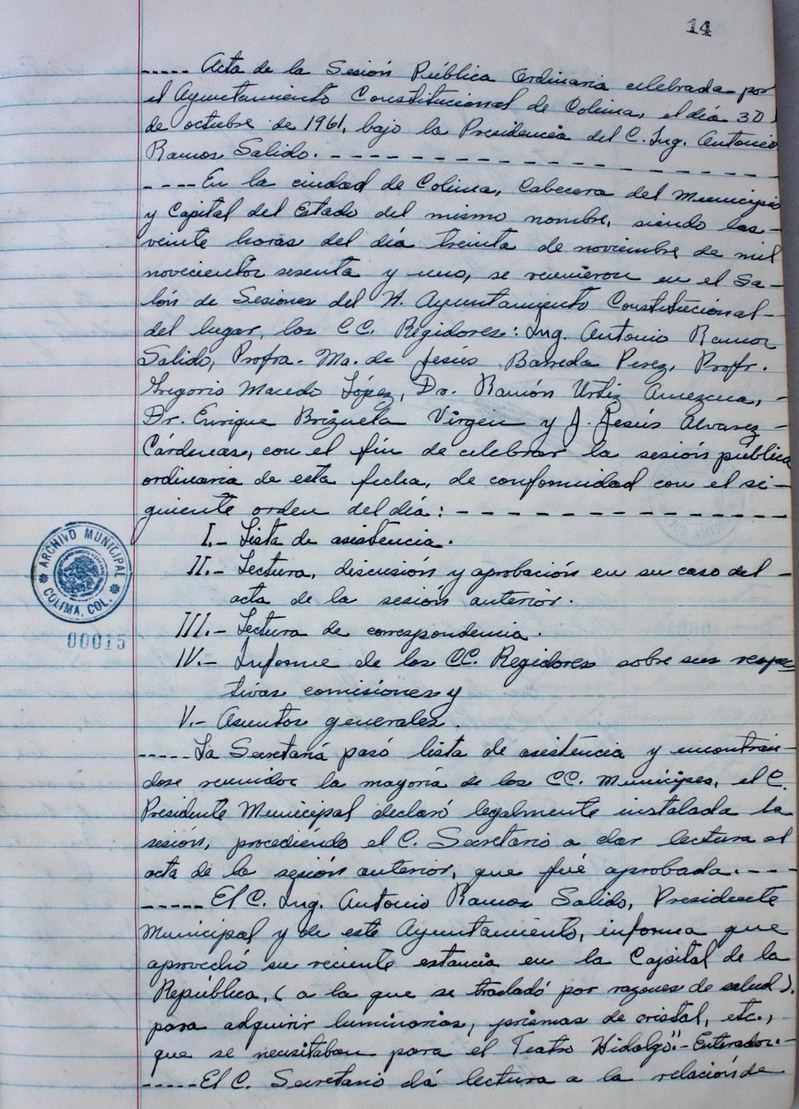 14
----- Acta de la Sesión Pública Ordinaria celebrada por
el Ayuntamiento Constitucional de Colima, el día 30
de octubre de 1961, bajo la Presidencia del C. Ing. Antonio
Ramos Salido. - - - - - - - - - - - - - - - -
---- En la ciudad de Colima, Cabecera del Municipio
y Capital del Estado del mismo nombre, siendo las-
veinte horas del día treinta de noviembre de mil
novecientos sesenta y uno, se reunieron en el Sa-
lón de Sesiones del H. Ayuntamiento Constitucional-
del lugar, los CC. Regidores: Ing. Antonio Ramos
Salido, Profra. Ma. de Jesús Barreda Perez, Profr.
Gregorio Macedo López, Dr. Ramón Urtiz Amezcua,-
Dr. Enrique Brizuela Virgen y J. Jesús Alvarez-
Cárdenas, con el fin de celebrar la sesión pública
ordinaria de esta fecha, de conformidad con el si-
guiente orden del día: - - - - - - - - - - - - -
I.- Lista de asistencia.
II.- Lectura, discusión y aprobación en su caso del -
acta de la sesión anterior.
III.- Lectura de correspondencia.
IV.- Informe de los CC. Regidores sobre sus respec-
tivas comisiones y
V.- Asuntos generales.
----- La Secretaría pasó lista de asistencia y encontran-
dose reunidos la mayoría de los CC. Munícipes, el C.
Presidente Municipal declaró legalmente instalada la
sesión, procediendo el C. Secretario a dar lectura al
acta de la sesión anterior, que fué aprobada.---
----- El C. Ing. Antonio Ramos Salido, Presidente
Municipal y de este Ayuntamiento, informa que
aprovechó su reciente estancia en la Capital de la
República, (a la que se trasladó por razones de salud).
para adquirir luminarias, prismas de cristal, etc.,
que se necesitaban para el Teatro Hidalgo".-Enterados.-
----- El C. Secretario dá lectura a la relación de
ARCHIVO MUNICIPAL
COLIMA, COL.
00015